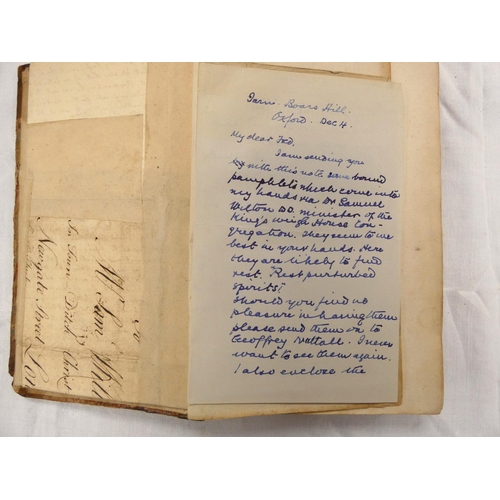 Boars Hill.
Oxford. Dec 4.
My dear Fred,
I am sending you
with this note some bound
pamphlets which came into
my hands via Dr Samuel
Wilton DD. minister of the
King's weigh House Con-
gregation. They seem to me
best in your hands. Here
they are likely to find
rest. Rest purturbed
spirits!
Should you find no
pleasure in having them
please send them on to
Geoffrey Nuttall. I never
want to see them again.
I also enclose the
Mr Sam
In Town
Newgate Street